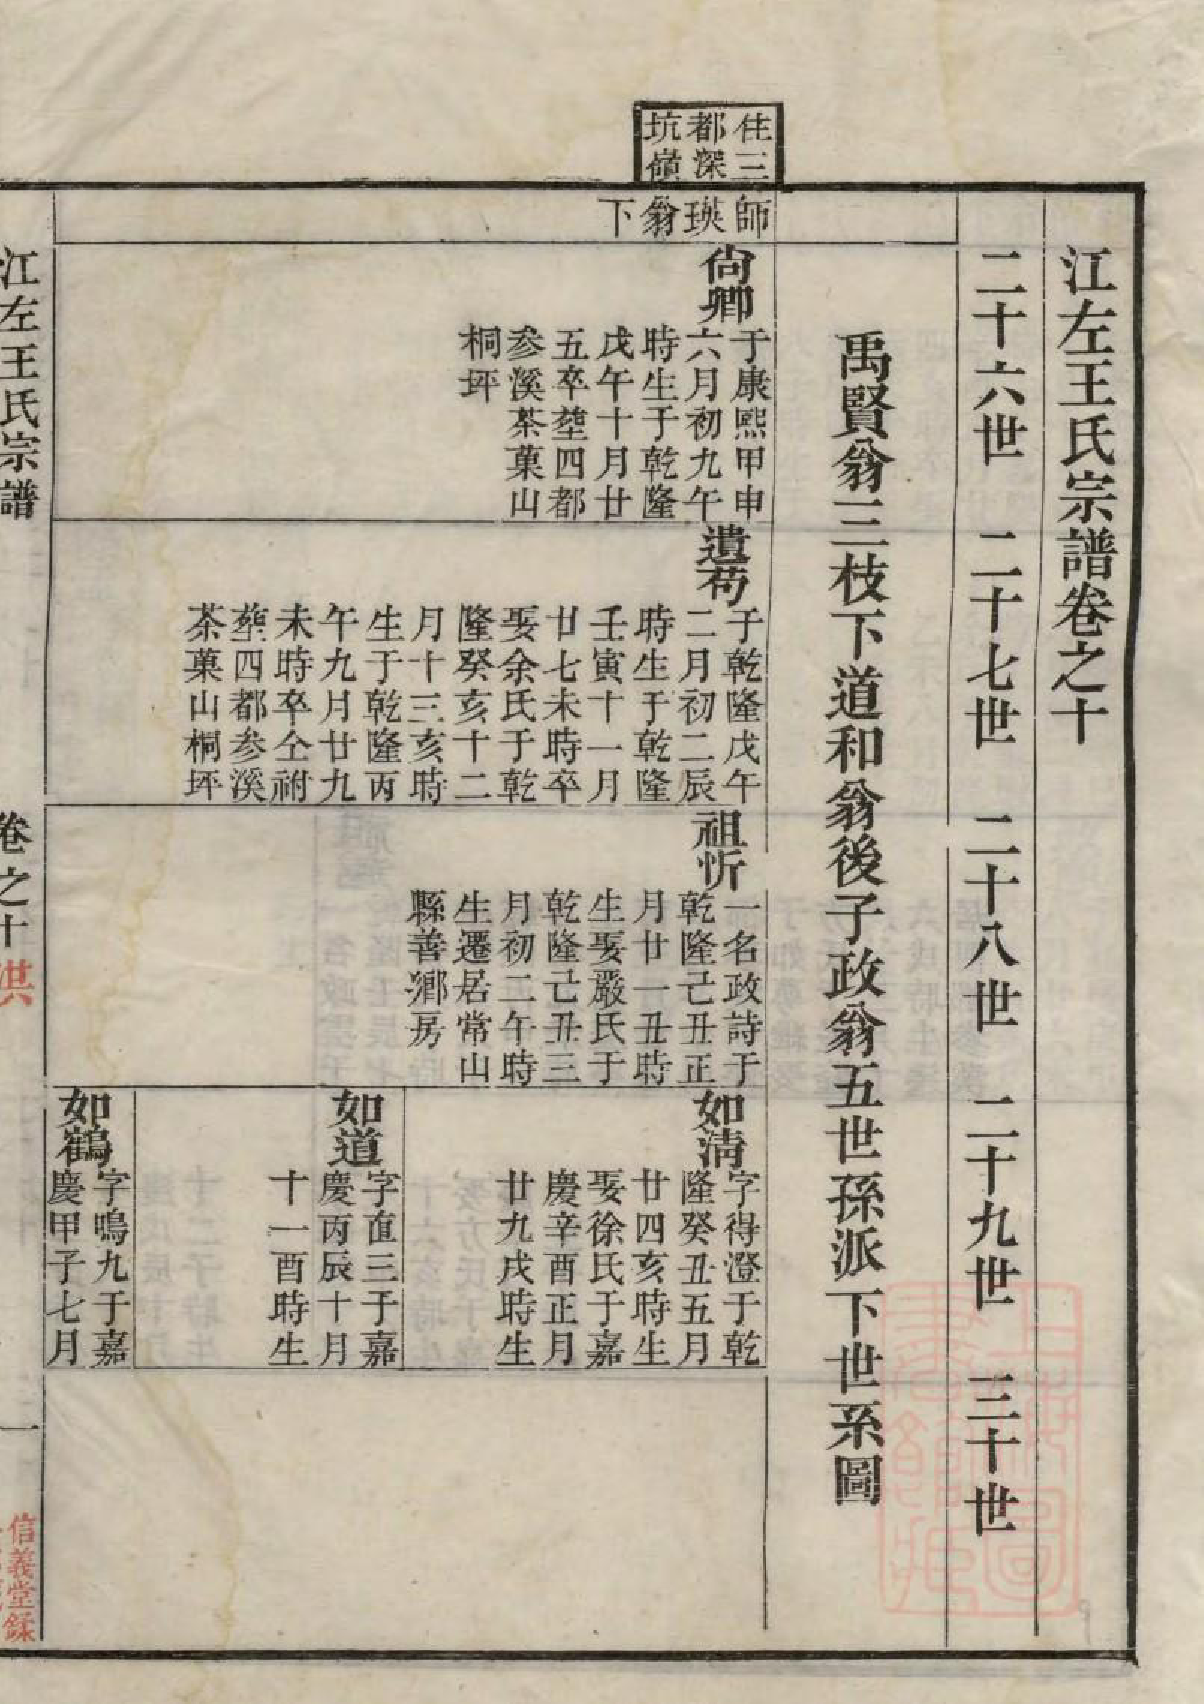 江左王氏宗譜卷之十
二十六世　二十七世　二十八世　二十九世　三十世
禹賢翁三枝下道和翁後子政翁五世孫派下世系圖
住三
都深
坑嶺
師瑛翁下
尙卿
于康熙甲申
六月初九午
時生于乾隆
戊午十月廿
五卒塟四都
参溪茶菓山
桐坪
遺苟
于乾隆戊午
二月初二辰
時生于乾隆
壬寅十一月
廿七未時卒
娶余氏于乾
隆癸亥十二
月十三亥時
生于乾隆丙
午九月廿九
未時卒仝祔
塟四都参溪
茶菓山桐坪
祖忻
一名政詩于
乾隆己丑正
月廿一丑時
生娶嚴氏于
乾隆己丑三
月初二午時
生遷居常山
縣善鄉房
如淸
字得澄于乾
隆癸丑五月
廿四亥時生
娶徐氏于嘉
慶辛酉正月
廿九戌時生
如道
字直三于嘉
慶丙辰十月
十一酉時生
如鶴
字鳴九于嘉
慶甲子七月
江左王氏宗譜
卷之十
洪
一
信義堂錄